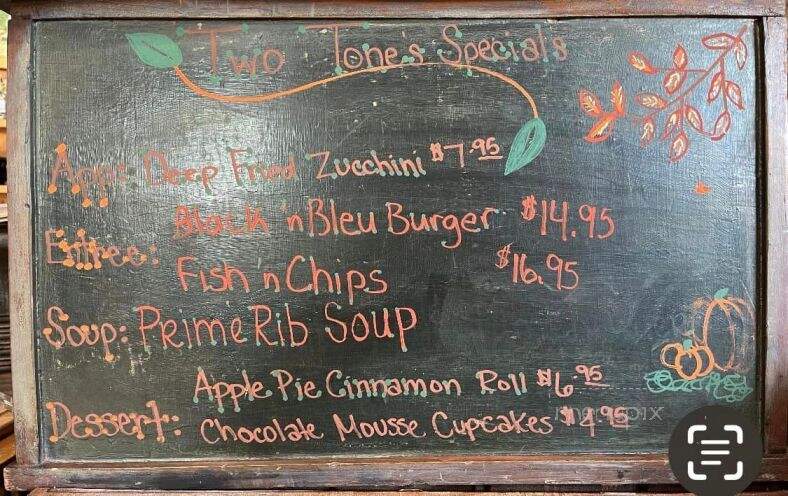 Two Tone's Specials
App: Deep Fried Zucchini $7.95
Black 'n Bleu Burger $14.95
Entree:
Fish 'n Chips $16.95
Soup: Prime Rib Soup
Apple Pie Cinnamon Roll $6.95
Dessert:
Chocolate Mousse Cupcakes $4.95